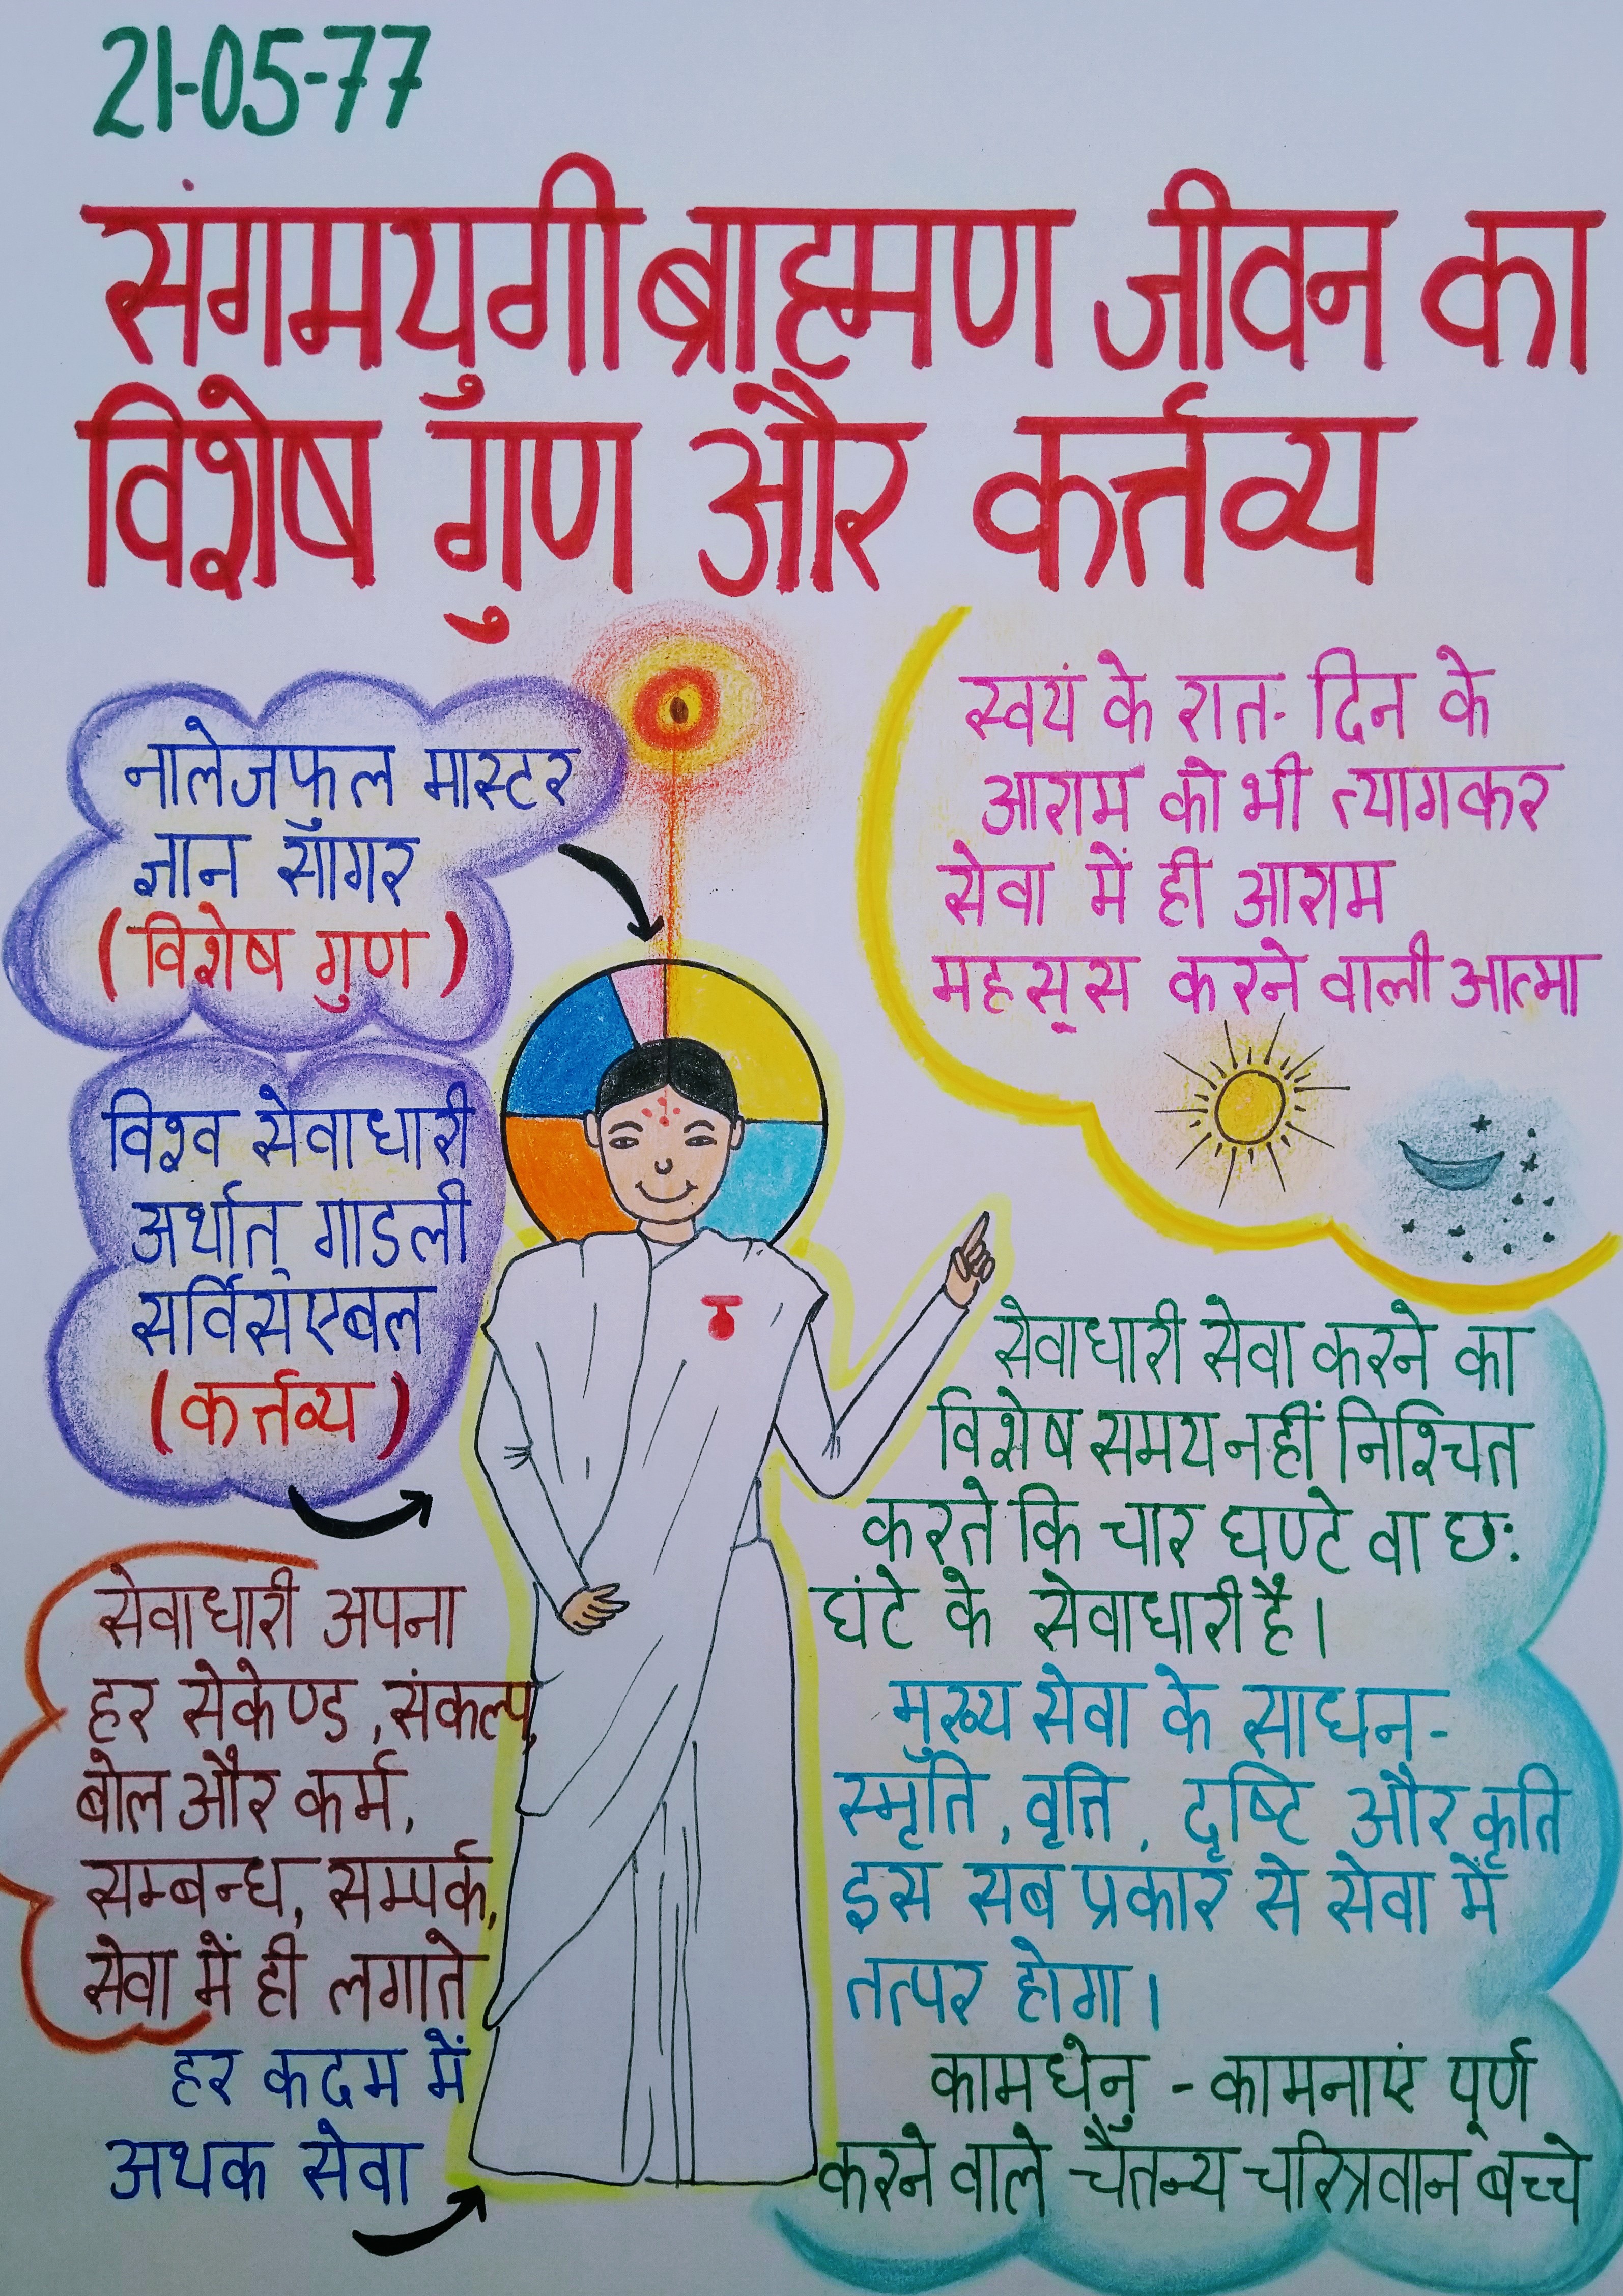 21-05-77
संगमयुगी ब्राह्मण जीवन का
विशेष गुण और कर्त्तव्य
नालेजफुल मास्टर
ज्ञान सागर
(विशेष गुण)
विश्व सेवाधारी
अर्थात् गाडली
सर्विसएबल
(कर्त्तव्य)
सेवाधारी अपना
हर सेकेण्ड, संकल्प,
बोल और कर्म,
सम्बन्ध, सम्पर्क,
सेवा में ही लगाते
हर कदम में
अथक सेवा
स्वयं के रात-दिन के
आराम को भी त्यागकर
सेवा में ही आराम
महसूस करने वाली आत्मा
सेवाधारी सेवा करने का
विशेष समय नहीं निश्चित
करते कि चार घण्टे वा छ:
घंटे के सेवाधारी है।
मुख्य सेवा के साधन-
स्मृति, वृत्ति, दृष्टि और कृति
इस सब प्रकार से सेवा में
तत्पर होगा।
कामधेनु - कामनाएं पूर्ण
करने वाले चैतन्य चरित्रवान बच्चे